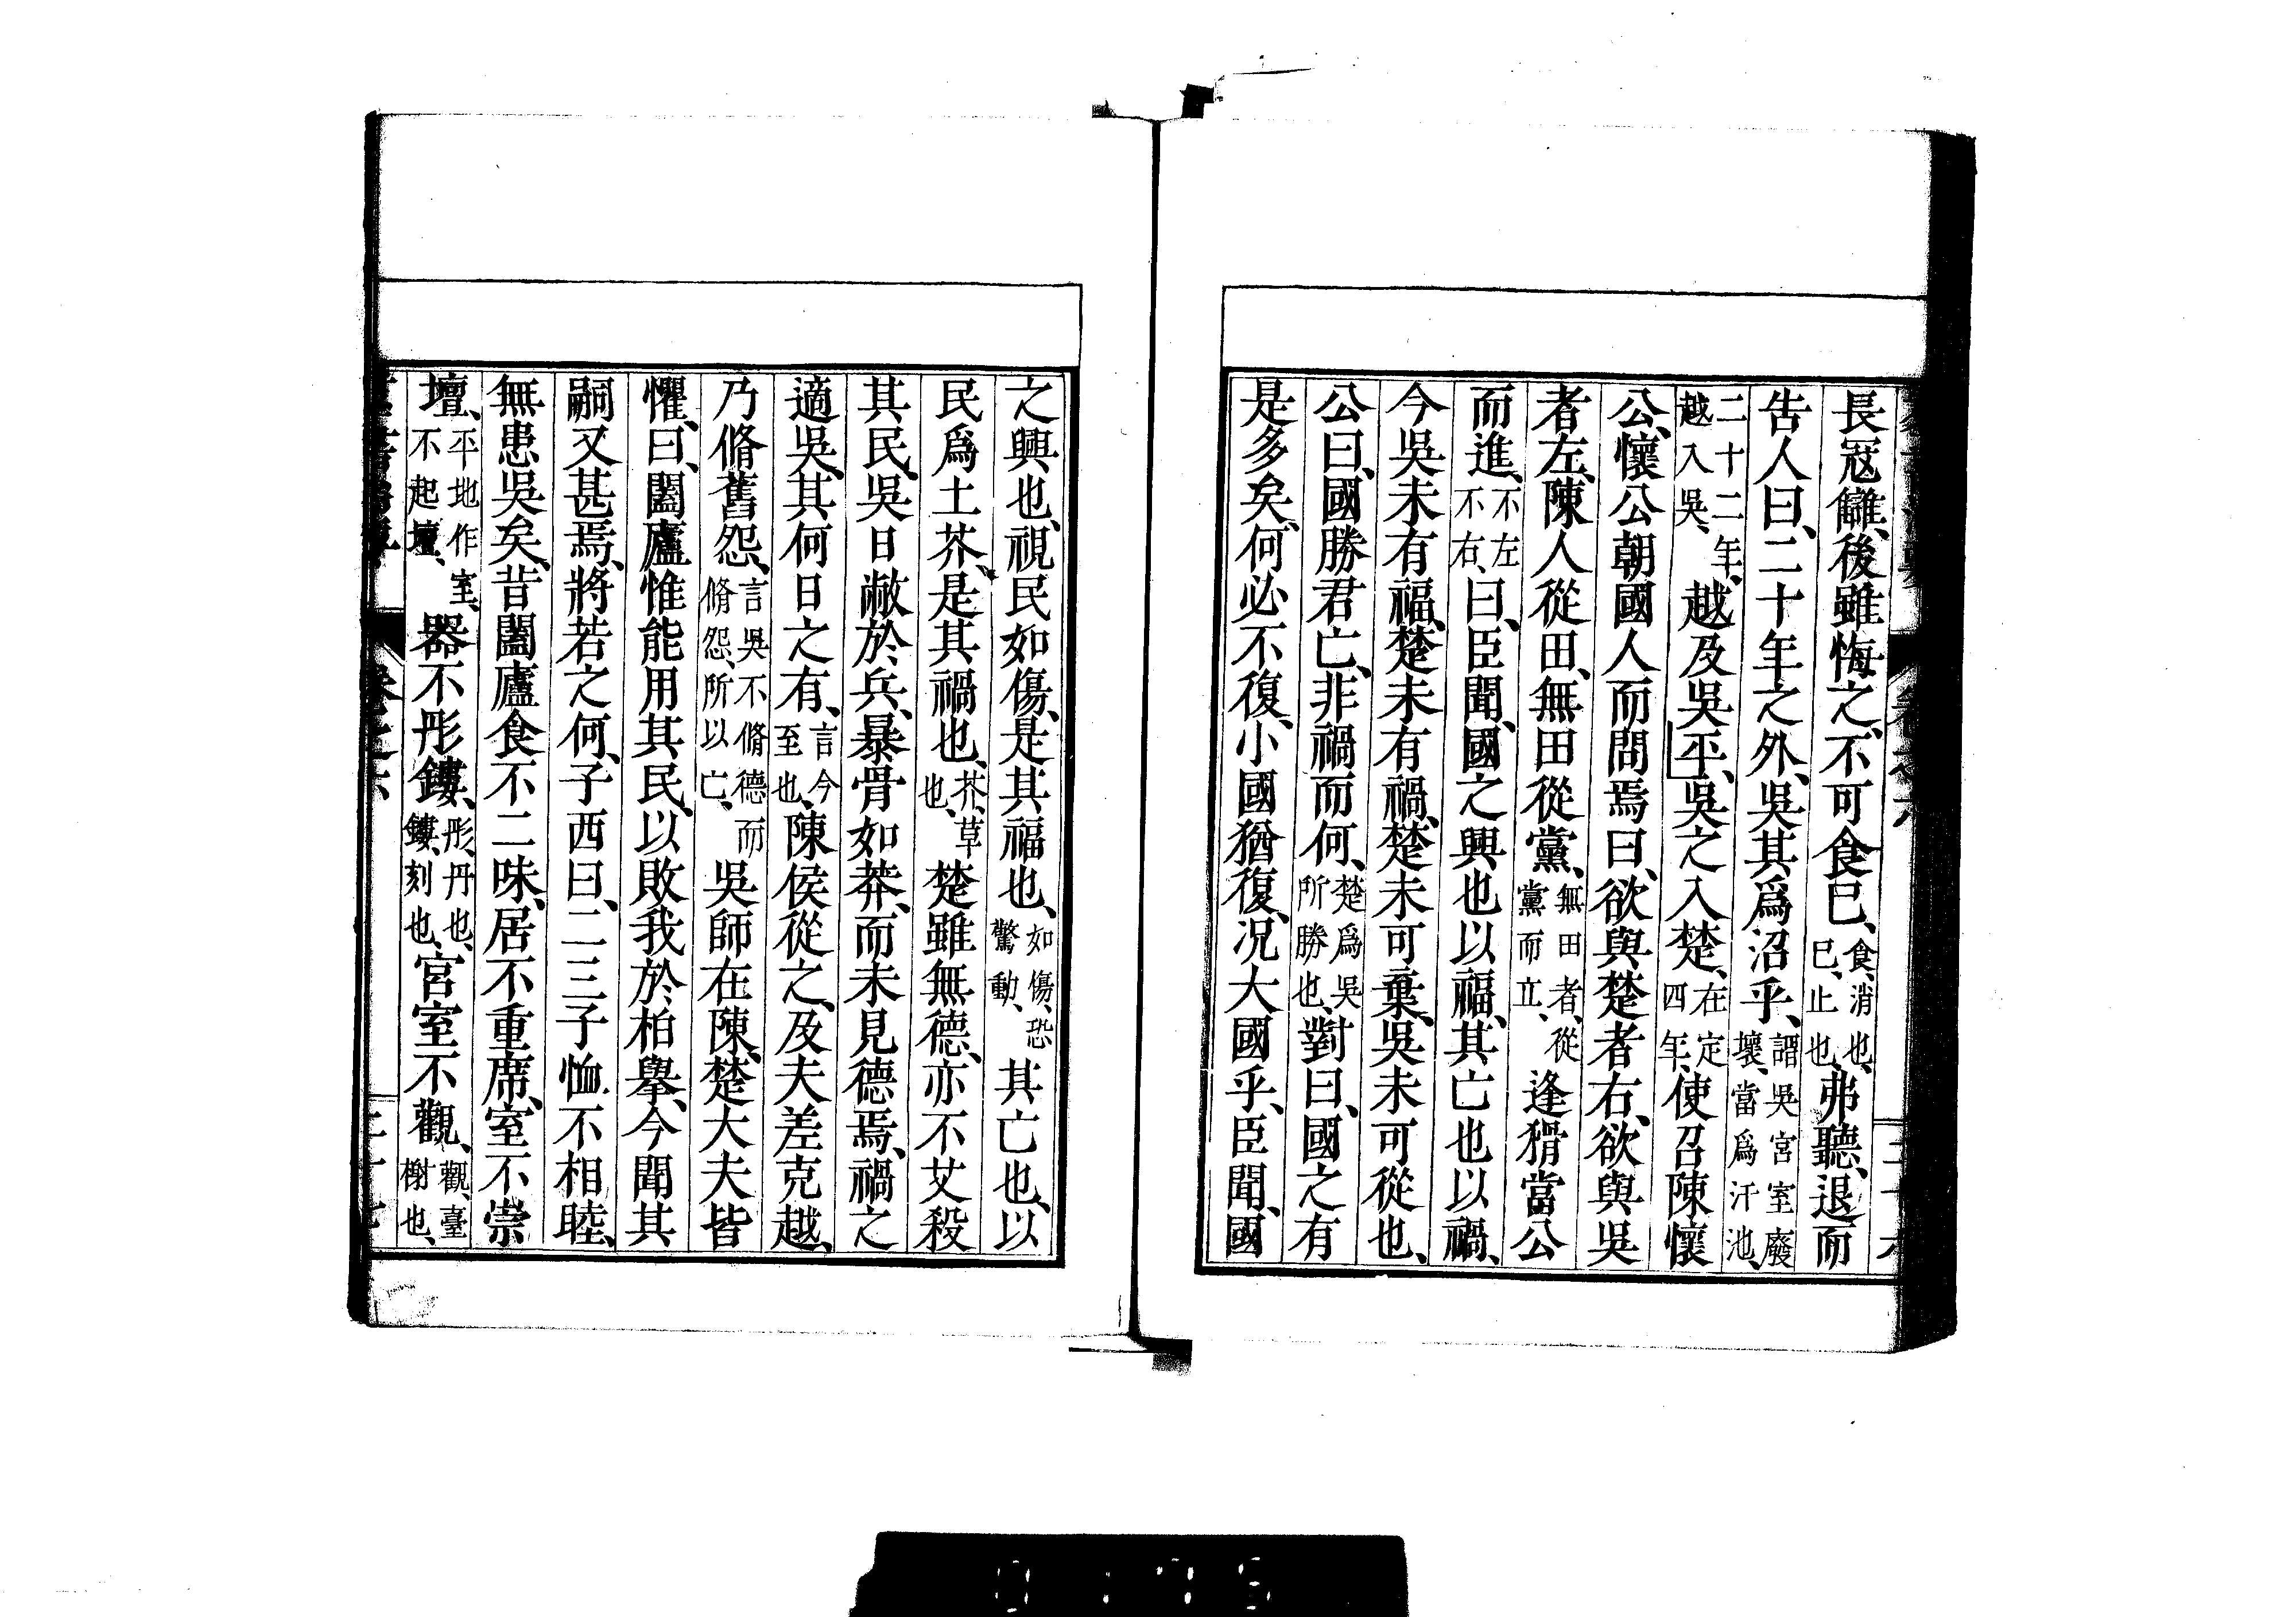 長寇讎、後雖悔之、不可食已、食、消也、已、止也、弗聽、退而
告人曰、二十年之外、吳其爲沼乎、謂吳宮室廢壞、當爲汙池、
二十二年、越入吳、越及吳平、吳之入楚、在定四年、使召陳懷
公、懷公朝國人而問焉曰、欲與楚者右、欲與吳
者左、陳人從田、無田從黨、無田者、從黨而立、逢猾當公
而進、不左不右、曰、臣聞、國之興也以福、其亡也以禍、
今吳未有福、楚未有禍、楚未可棄、吳未可從也、
公曰、國勝君亡、非禍而何、楚爲吳所勝也、對曰、國之有
是多矣、何必不復、小國猶復、況大國乎、臣聞、國
之興也、視民如傷、是其福也、如傷、恐驚動、其亡也、以
民爲土芥、是其禍也、芥、草也、楚雖無德、亦不艾殺
其民、吳日敝於兵、暴骨如莽、而未見德焉、禍之
適吳、其何日之有、言今至也、陳侯從之、及夫差克越、
乃脩舊怨、言吳不脩德而脩怨、所以亡、吳師在陳、楚大夫皆
懼、曰、闔廬惟能用其民、以敗我於柏舉、今聞其
嗣又甚焉、將若之何、子西曰、二三子恤不相睦、
無患吳矣、昔闔廬食不二味、居不重席、室不崇
壇、平地作室、不起壇、器不彤鏤、彤、丹也、鏤、刻也、宮室不觀、觀、臺榭也、